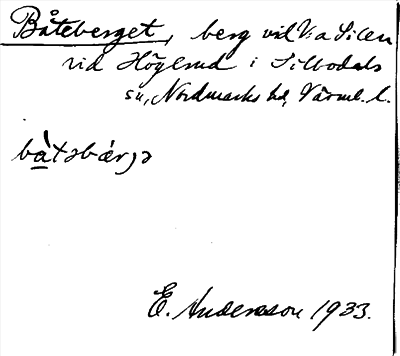 Båteberget, berg vid V:a Silen
vid Högerud i Sillbodals
sn, Nordmarks hd, Värml. l.
bå̀təbær̨ə
E. Andersson 1933.